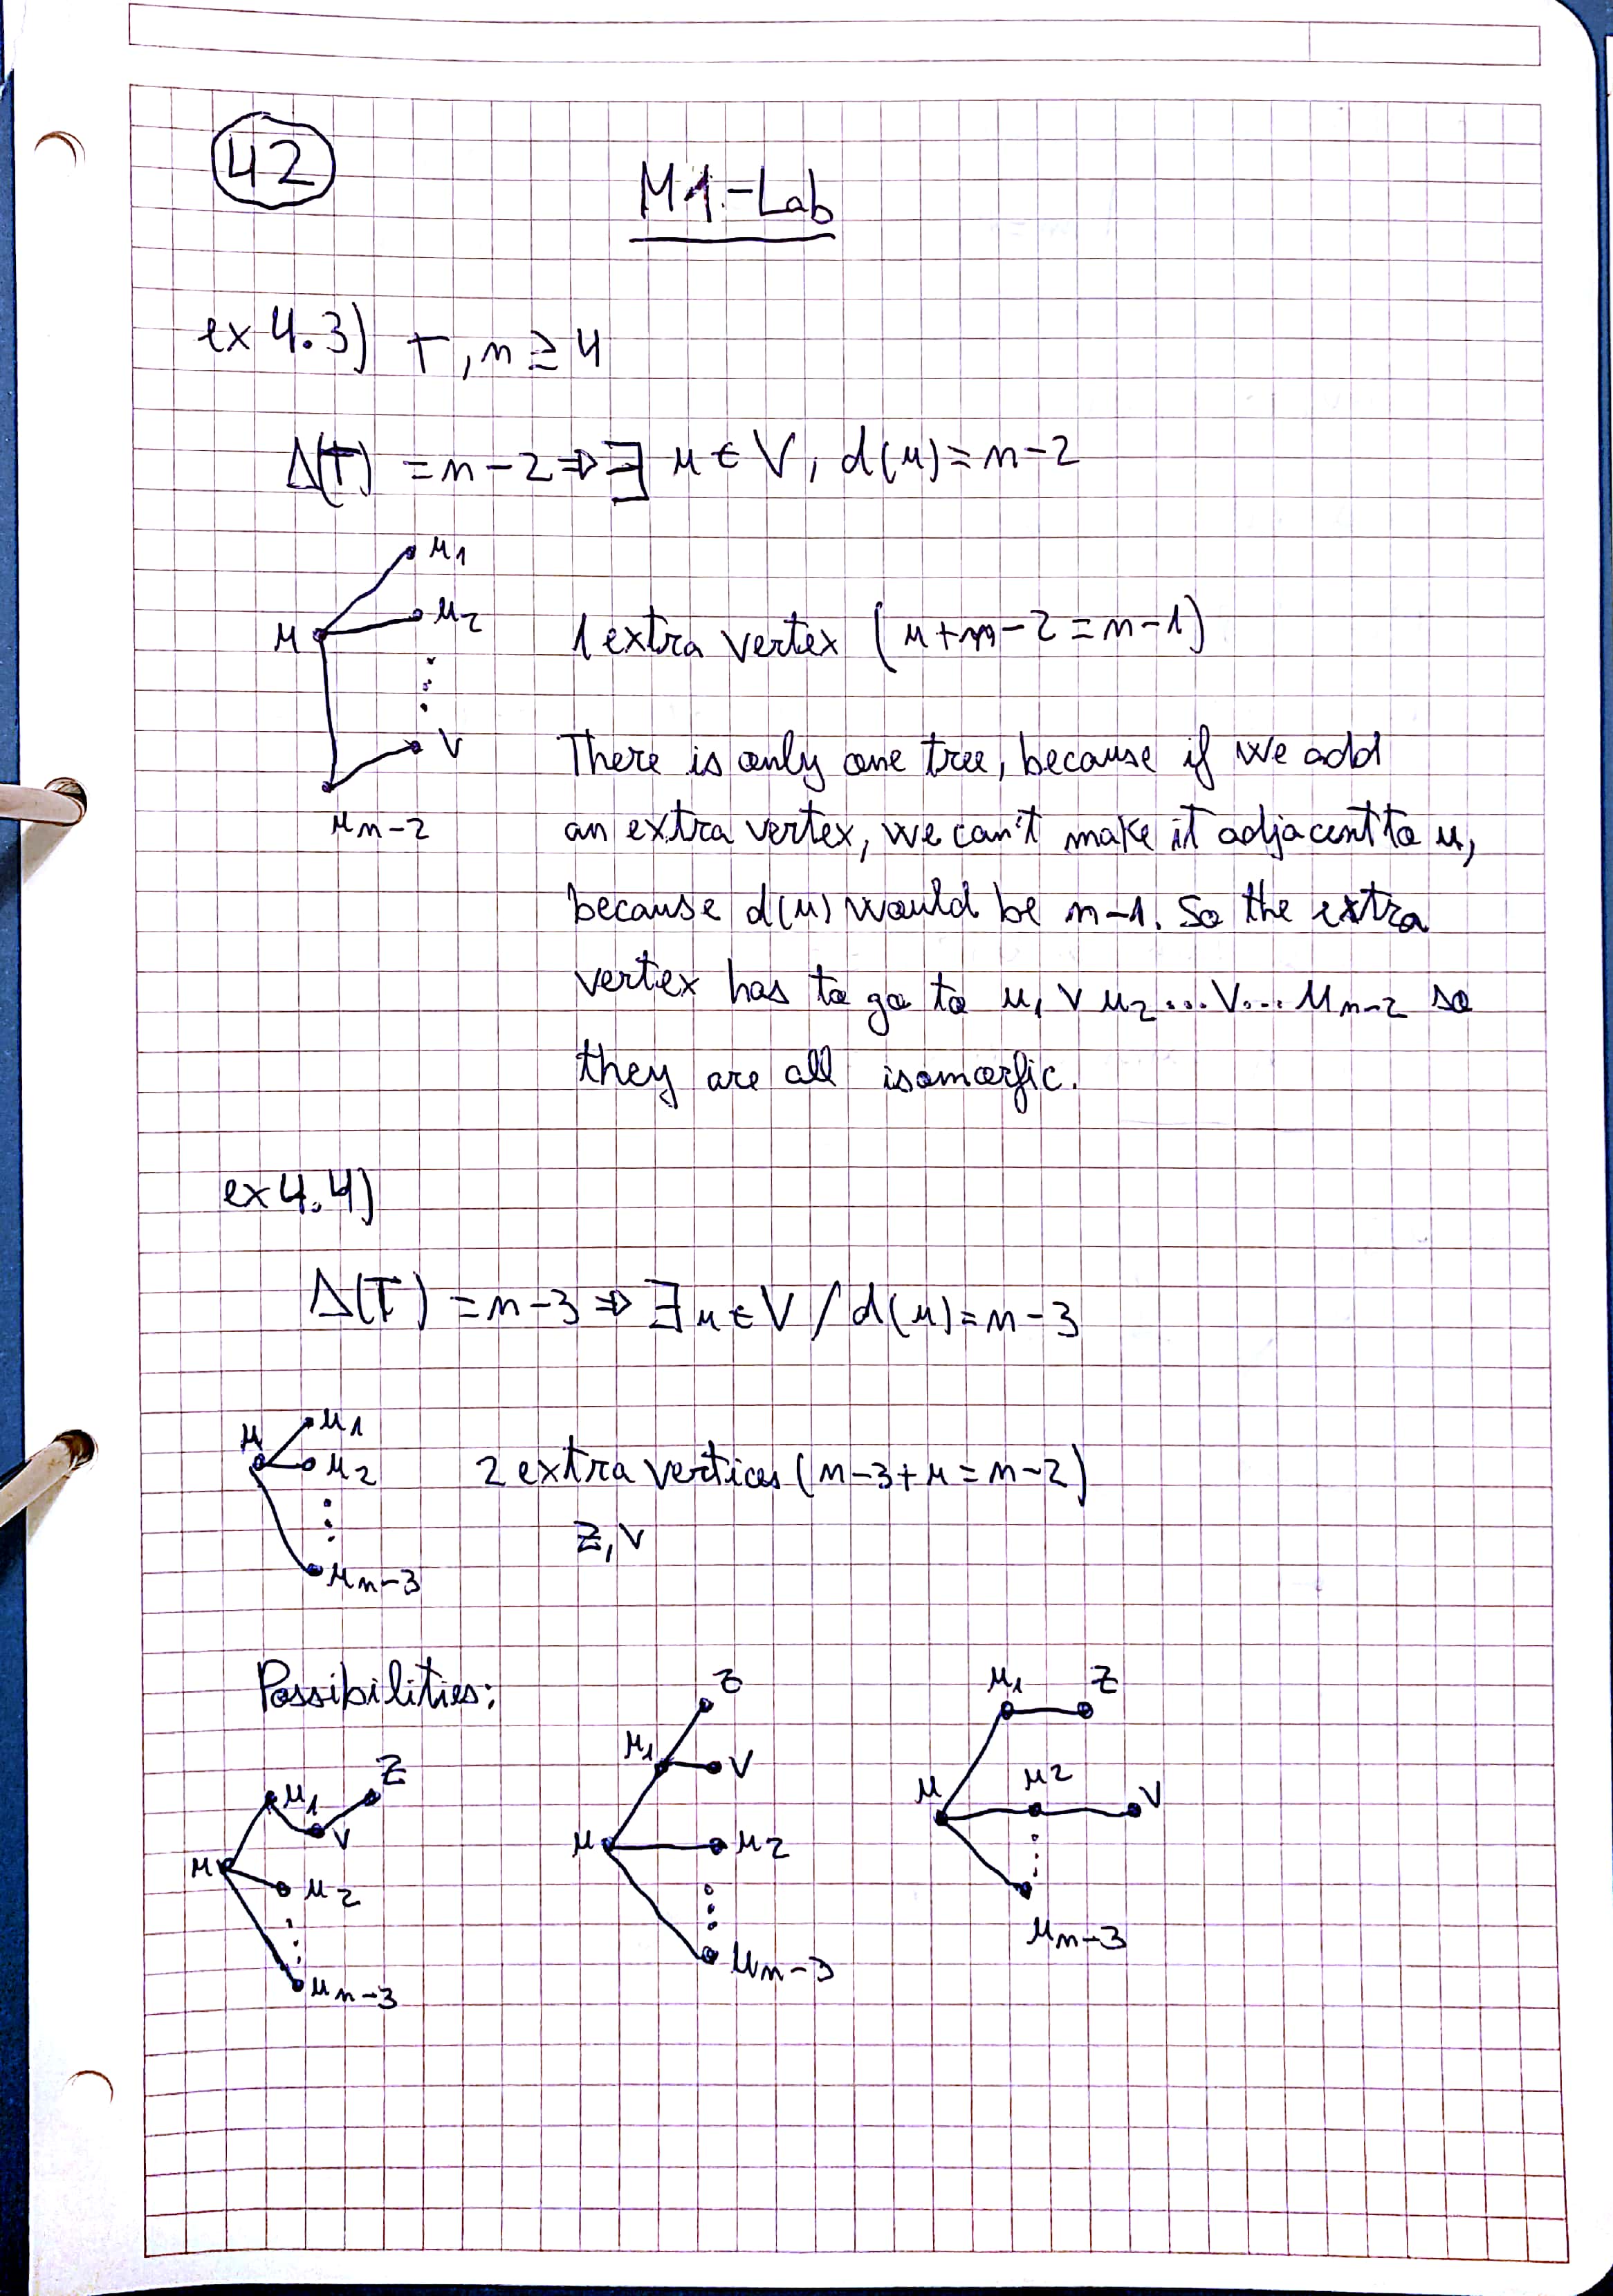 42
M1-Lab
ex 4.3) T, n ≥ 4
Δ(T) = n-2 ⇒ ∃ u ∈ V, d(u) = n-2
u1
u2
u
v
un-2
1 extra vertex (u+n-2 = n-1)
There is only one tree, because if we add
an extra vertex, we can't make it adjacent to u,
because d(u) would be n-1. So the extra
vertex has to go to u1 v u2 ... v ... un-2 so
they are all isomorfic.
ex 4.4)
Δ(T) = n-3 ⇒ ∃ u ∈ V / d(u) = n-3
u
u1
u2
un-3
2 extra vertices (n-3+u = n-2)
z, v
Possibilities:
z
u1
v
u
u2
un-3
z
u1
v
u
u2
un-3
u1
z
u
u2
v
un-3